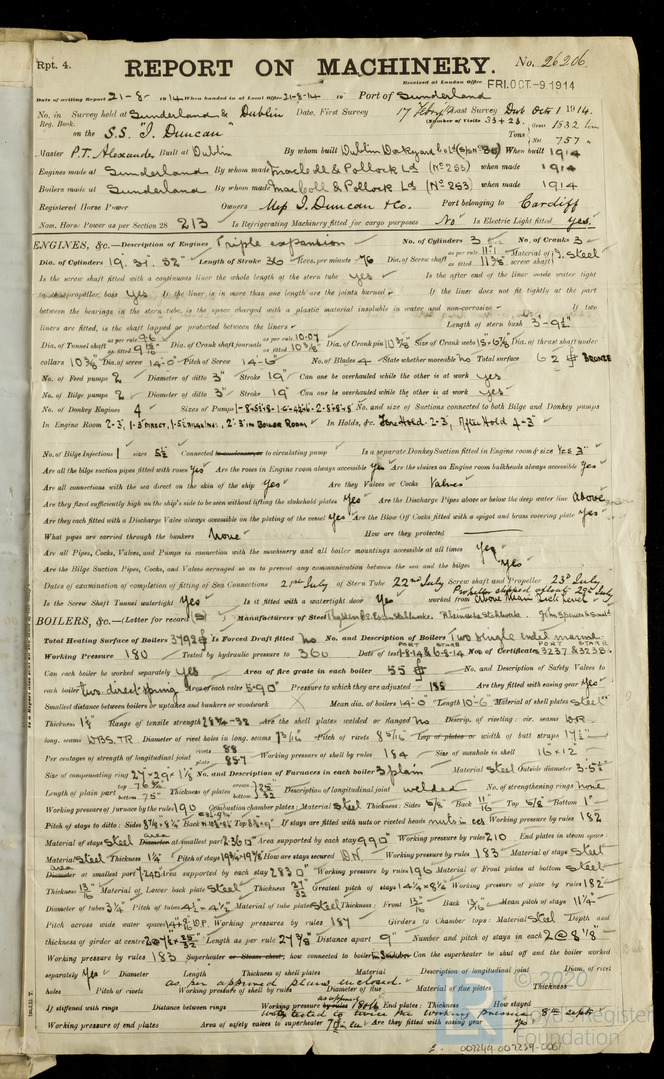 Rpt. 4.
REPORT ON MACHINERY.
No. 26206
Received at London Office FRI. OCT - 9 1914
Date of writing Report 21-8- 1914 When handed in at Local Office 21-8-14 Port of Sunderland
No. in Reg. Book. Survey held at Sunderland & Dublin Date, First Survey 17 Last Survey Dub. Oct 1 1914.
(Number of Visits 33 + 23.
on the S.S. "J. Duncan" Tons { Gross 1532 Net 757
Master P.T. Alexander Built at Dublin By whom built Dublin Dockyard Co Ld When built 1914
Engines made at Sunderland By whom made MacColl & Pollock Ld (No 253) when made 1914
Boilers made at Sunderland By whom made MacColl & Pollock Ld (No 253) when made 1914
Registered Horse Power Owners J. Duncan & Co. Port belonging to Cardiff
Nom. Horse Power as per Section 28 213 Is Refrigerating Machinery fitted for cargo purposes No Is Electric Light fitted Yes.
ENGINES, &c.—Description of Engines Triple expansion No. of Cylinders 3 No. of Cranks 3
Dia. of Cylinders 19", 31", 52" Length of Stroke 36 Revs. per minute 76 Dia. of Screw shaft as per rule 11.1 as fitted 11 3/8 Material of screw shaft Steel
Is the screw shaft fitted with a continuous liner the whole length of the stern tube Yes Is the after end of the liner made water tight
in the propeller boss Yes If the liner is in more than one length are the joints burned If the liner does not fit tightly at the part
between the bearings in the stern tube, is the space charged with a plastic material insoluble in water and non-corrosive If two
liners are fitted, is the shaft lapped or protected between the liners Length of stern bush 3'-9½"
Dia. of Tunnel shaft as per rule 9.6 as fitted Dia. of Crank shaft journals as per rule 10.07 as fitted 10 3/8" Dia. of Crank pin 10 3/8" Size of Crank webs Dia. of thrust shaft under
collars 10 3/8" Dia. of screw 14-0" Pitch of Screw 14-6" No. of Blades 4 State whether moveable No Total surface 62 BRONZE
No. of Feed pumps 2 Diameter of ditto 3" Stroke 19" Can one be overhauled while the other is at work Yes
No. of Bilge pumps 2 Diameter of ditto 3" Stroke 19" Can one be overhauled while the other is at work Yes
No. of Donkey Engines 4 Sizes of Pumps No. and size of Suctions connected to both Bilge and Donkey pumps
In Engine Room 2-3", 1-3" DIRECT, 2-3" IN BOILER ROOM In Holds, &c. Fore Hold 2-3, After Hold 4-3"
No. of Bilge Injections 1 sizes 5½ Connected to condenser, or to circulating pump Is a separate Donkey Suction fitted in Engine room & size Yes 3"
Are all the bilge suction pipes fitted with roses Yes Are the roses in Engine room always accessible Yes Are the sluices on Engine room bulkheads always accessible Yes
Are all connections with the sea direct on the skin of the ship Yes Are they Valves or Cocks Valves
Are they fixed sufficiently high on the ship's side to be seen without lifting the stokehold plates Yes Are the Discharge Pipes above or below the deep water line Above
Are they each fitted with a Discharge Valve always accessible on the plating of the vessel Yes Are the Blow Off Cocks fitted with a spigot and brass covering plate Yes
What pipes are carried through the bunkers None How are they protected
Are all Pipes, Cocks, Valves, and Pumps in connection with the machinery and all boiler mountings accessible at all times Yes
Are the Bilge Suction Pipes, Cocks, and Valves arranged so as to prevent any communication between the sea and the bilges Yes
Dates of examination of completion of fitting of Sea Connections 21st July of Stern Tube 22nd July Screw shaft and Propeller 23rd July
Propeller shipped afloat 29th July
Is the Screw Shaft Tunnel watertight Yes Is it fitted with a watertight door Yes worked from Above Main Deck Level
BOILERS, &c.—(Letter for record (S)) Manufacturers of Steel
Total Heating Surface of Boilers 3792 Is Forced Draft fitted No No. and Description of Boilers Two single ended marine
Working Pressure 180 Tested by hydraulic pressure to 360 Date of test 1-8-14 & 6-8-14 No. of Certificates 3237 & 3238
Can each boiler be worked separately Yes Area of fire grate in each boiler 55 No. and Description of Safety Valves to
each boiler two direct spring Area of each valve 5.90 Pressure to which they are adjusted 185 Are they fitted with easing gear Yes
Smallest distance between boilers or uptakes and bunkers or woodwork Mean dia. of boilers 14-0" Length 10-6" Material of shell plates Steel
Thickness Range of tensile strength 28¾-32 Are the shell plates welded or flanged No Descrip. of riveting: cir. seams D.R.
long. seams D.B.S. T.R. Diameter of rivet holes in long. seams 1 3/16" Pitch of rivets 8 5/16" Lap of plates or width of butt straps 17½"
Per centages of strength of longitudinal joint rivets 88 plate 85.7 Working pressure of shell by rules 184 Size of manhole in shell 16 x 12"
Size of compensating ring 27 x 29 x 1 1/8 No. and Description of Furnaces in each boiler 3 plain Material Steel Outside diameter 3-5½
Length of plain part top 76¾ bottom Thickness of plates crown bottom 25/32 Description of longitudinal joint welded No. of strengthening rings none
Working pressure of furnace by the rules 190 Combustion chamber plates: Material Steel Thickness: Sides 5/8" Back 11/16 Top 5/8" Bottom 1"
Pitch of stays to ditto: Sides Back Top If stays are fitted with nuts or riveted heads nuts in ccs Working pressure by rules 182
Material of stays Steel area Diameter at smallest part 2.360" Area supported by each stay 990" Working pressure by rules 210 End plates in steam space:
Material Steel Thickness 1¼" Pitch of stays How are stays secured D.N. Working pressure by rules 183 Material of stays Steel
area Diameter at smallest part 7.240 Area supported by each stay 2830" Working pressure by rules 196 Material of Front plates at bottom Steel
Thickness 13/16" Material of Lower back plate Steel Thickness 27/32 Greatest pitch of stays 14¼ x 8¼ Working pressure of plate by rules 182
Diameter of tubes 3¼ Pitch of tubes 4½ x 4½ Material of tube plates Steel Thickness: Front 13/16 Back 13/16 Mean pitch of stays 11¼"
Pitch across wide water spaces D.P. Working pressures by rules 187 Girders to Chamber tops: Material Steel Depth and
thickness of girder at centre Length as per rule 27 7/8 Distance apart 9" Number and pitch of stays in each 2 @ 8 1/8"
Working pressure by rules 183 Superheater or Steam chest; how connected to boiler Can the superheater be shut off and the boiler worked
separately Yes Diameter Length Thickness of shell plates Material Description of longitudinal joint Diam. of rivet
as per approved plans enclosed.
holes Pitch of rivets Working pressure of shell by rules Diameter of flue Material of flue plates Thickness
If stiffened with rings Distance between rings Working pressure by rules End plates: Thickness How stayed
water tested to twice the working pressure 8th Sept.
Working pressure of end plates Area of safety valves to superheater Are they fitted with easing gear Yes
© 2020
Lloyd's Register
Foundation
002249-002259-0061